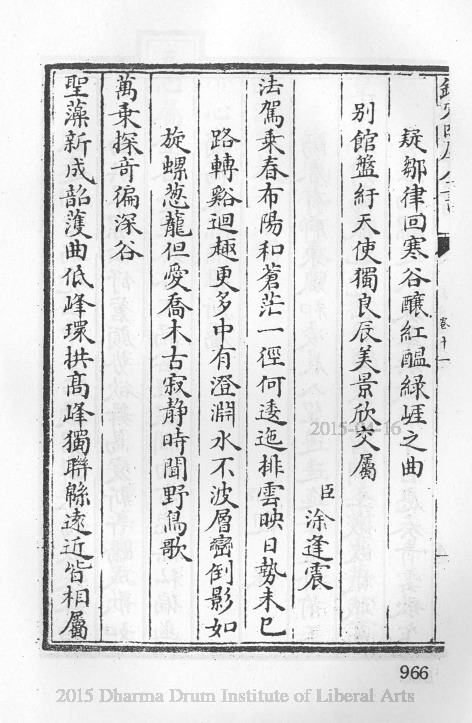 疑鄒律回寒谷釀紅醞綠崕之曲
別館盤紆天使獨良辰美景欣交屬
臣涂逢震
法駕乘春布陽和蒼茫一徑何逶迤排雲映日勢未已
路轉谿迴趣更多中有澄淵水不波層巒倒影如
旋螺葱蘢但愛喬木古寂靜時聞野鳥歌
萬乘探奇徧深谷
聖藻新成韶頀曲低峰環拱高峰獨聯緜遠近皆相屬
卷十一
2015-04-16
966
2015 Dharma Drum Institute of Liberal Arts